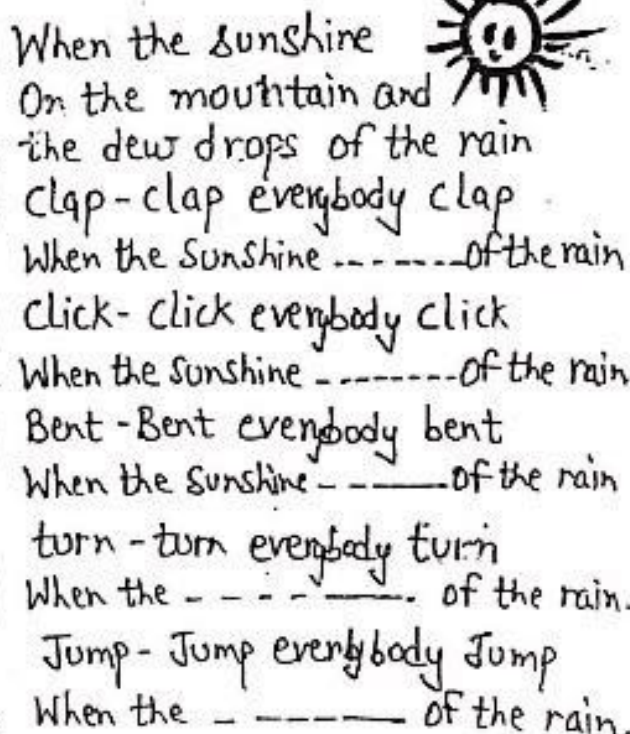 When the sunshine
On the mountain and
the dew drops of the rain
Clap - clap everybody clap
When the Sunshine -------- of the rain
Click - Click everybody click
When the Sunshine -------- of the rain
Bent - Bent everybody bent
When the Sunshine ------ of the rain
turn - turn everybody turn
When the ------- of the rain.
Jump - Jump everybody Jump
When the ------- of the rain.